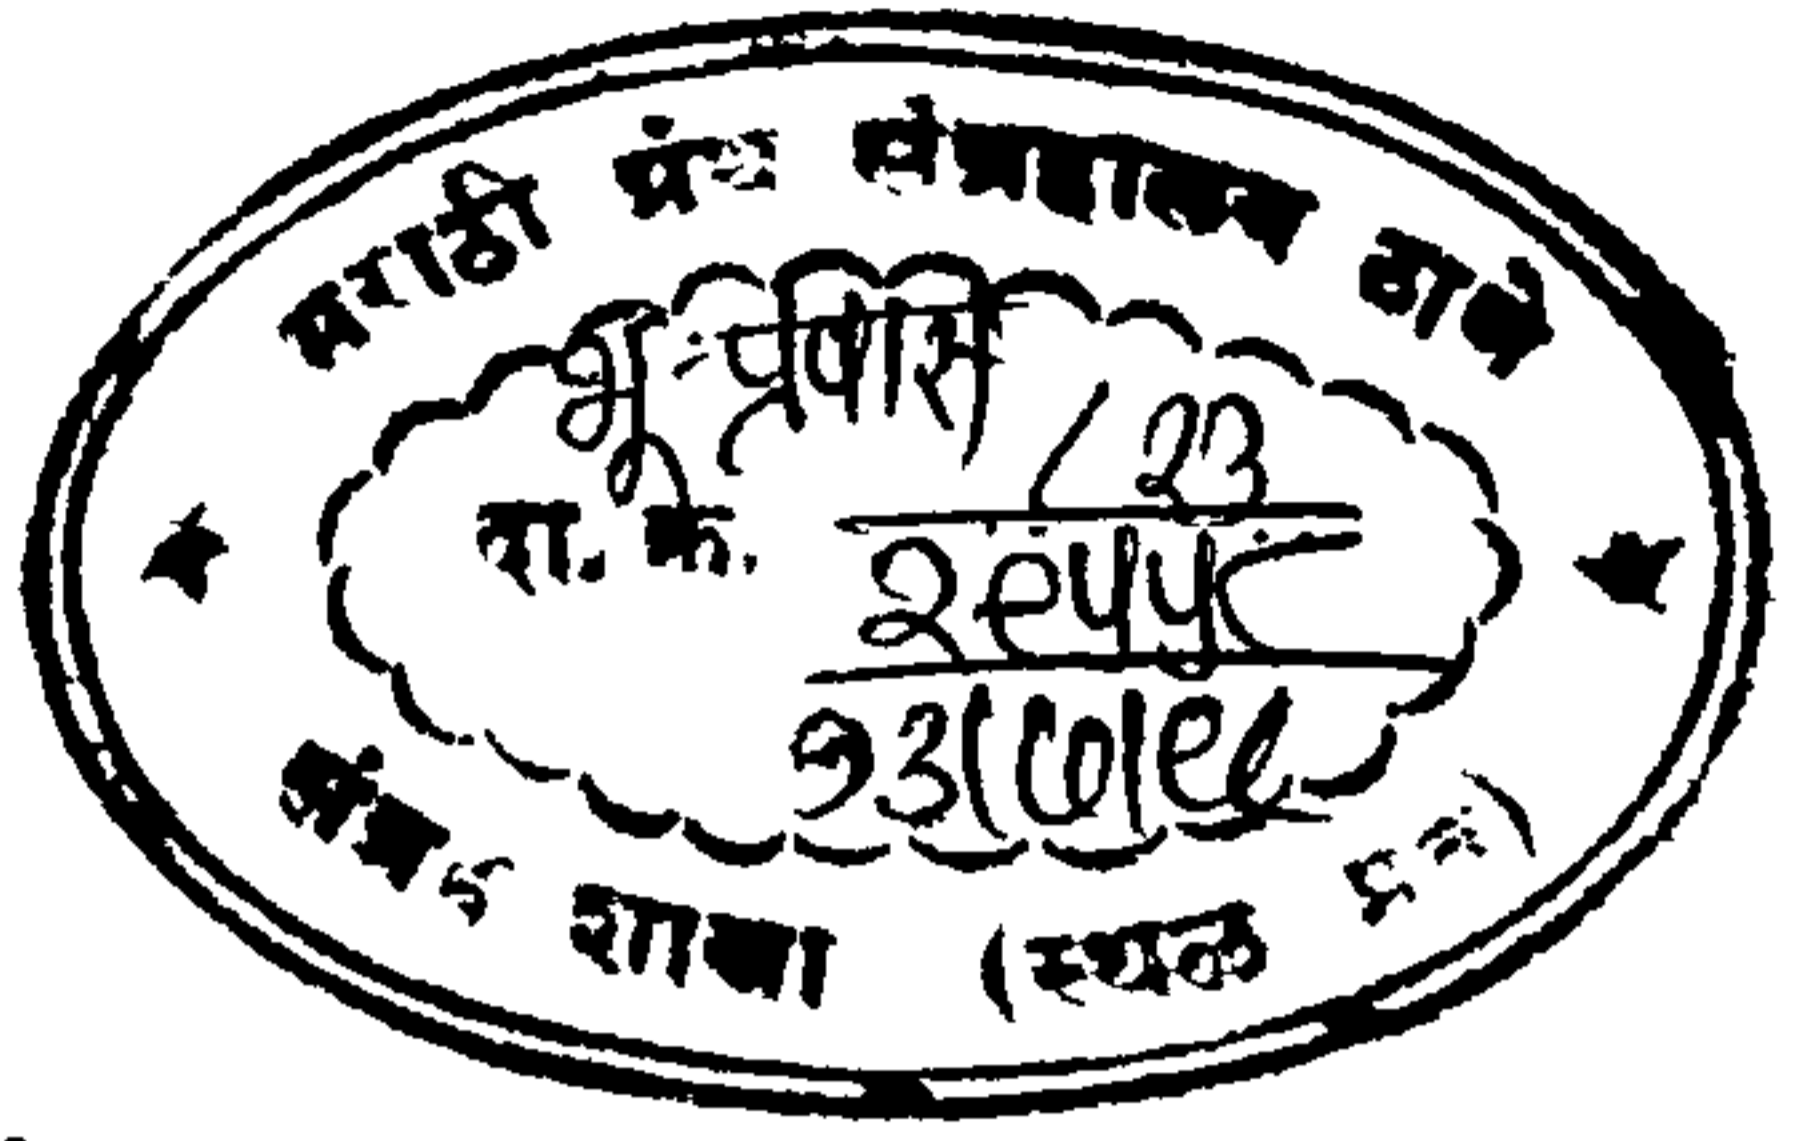 मराठी ग्रंथ संग्रहालय ठाणे
भू-प्रवास
/ २३
दा. क्र.
२९५५८
१३/७/९८
संग्रह शाखा (स्थळ प्रत)